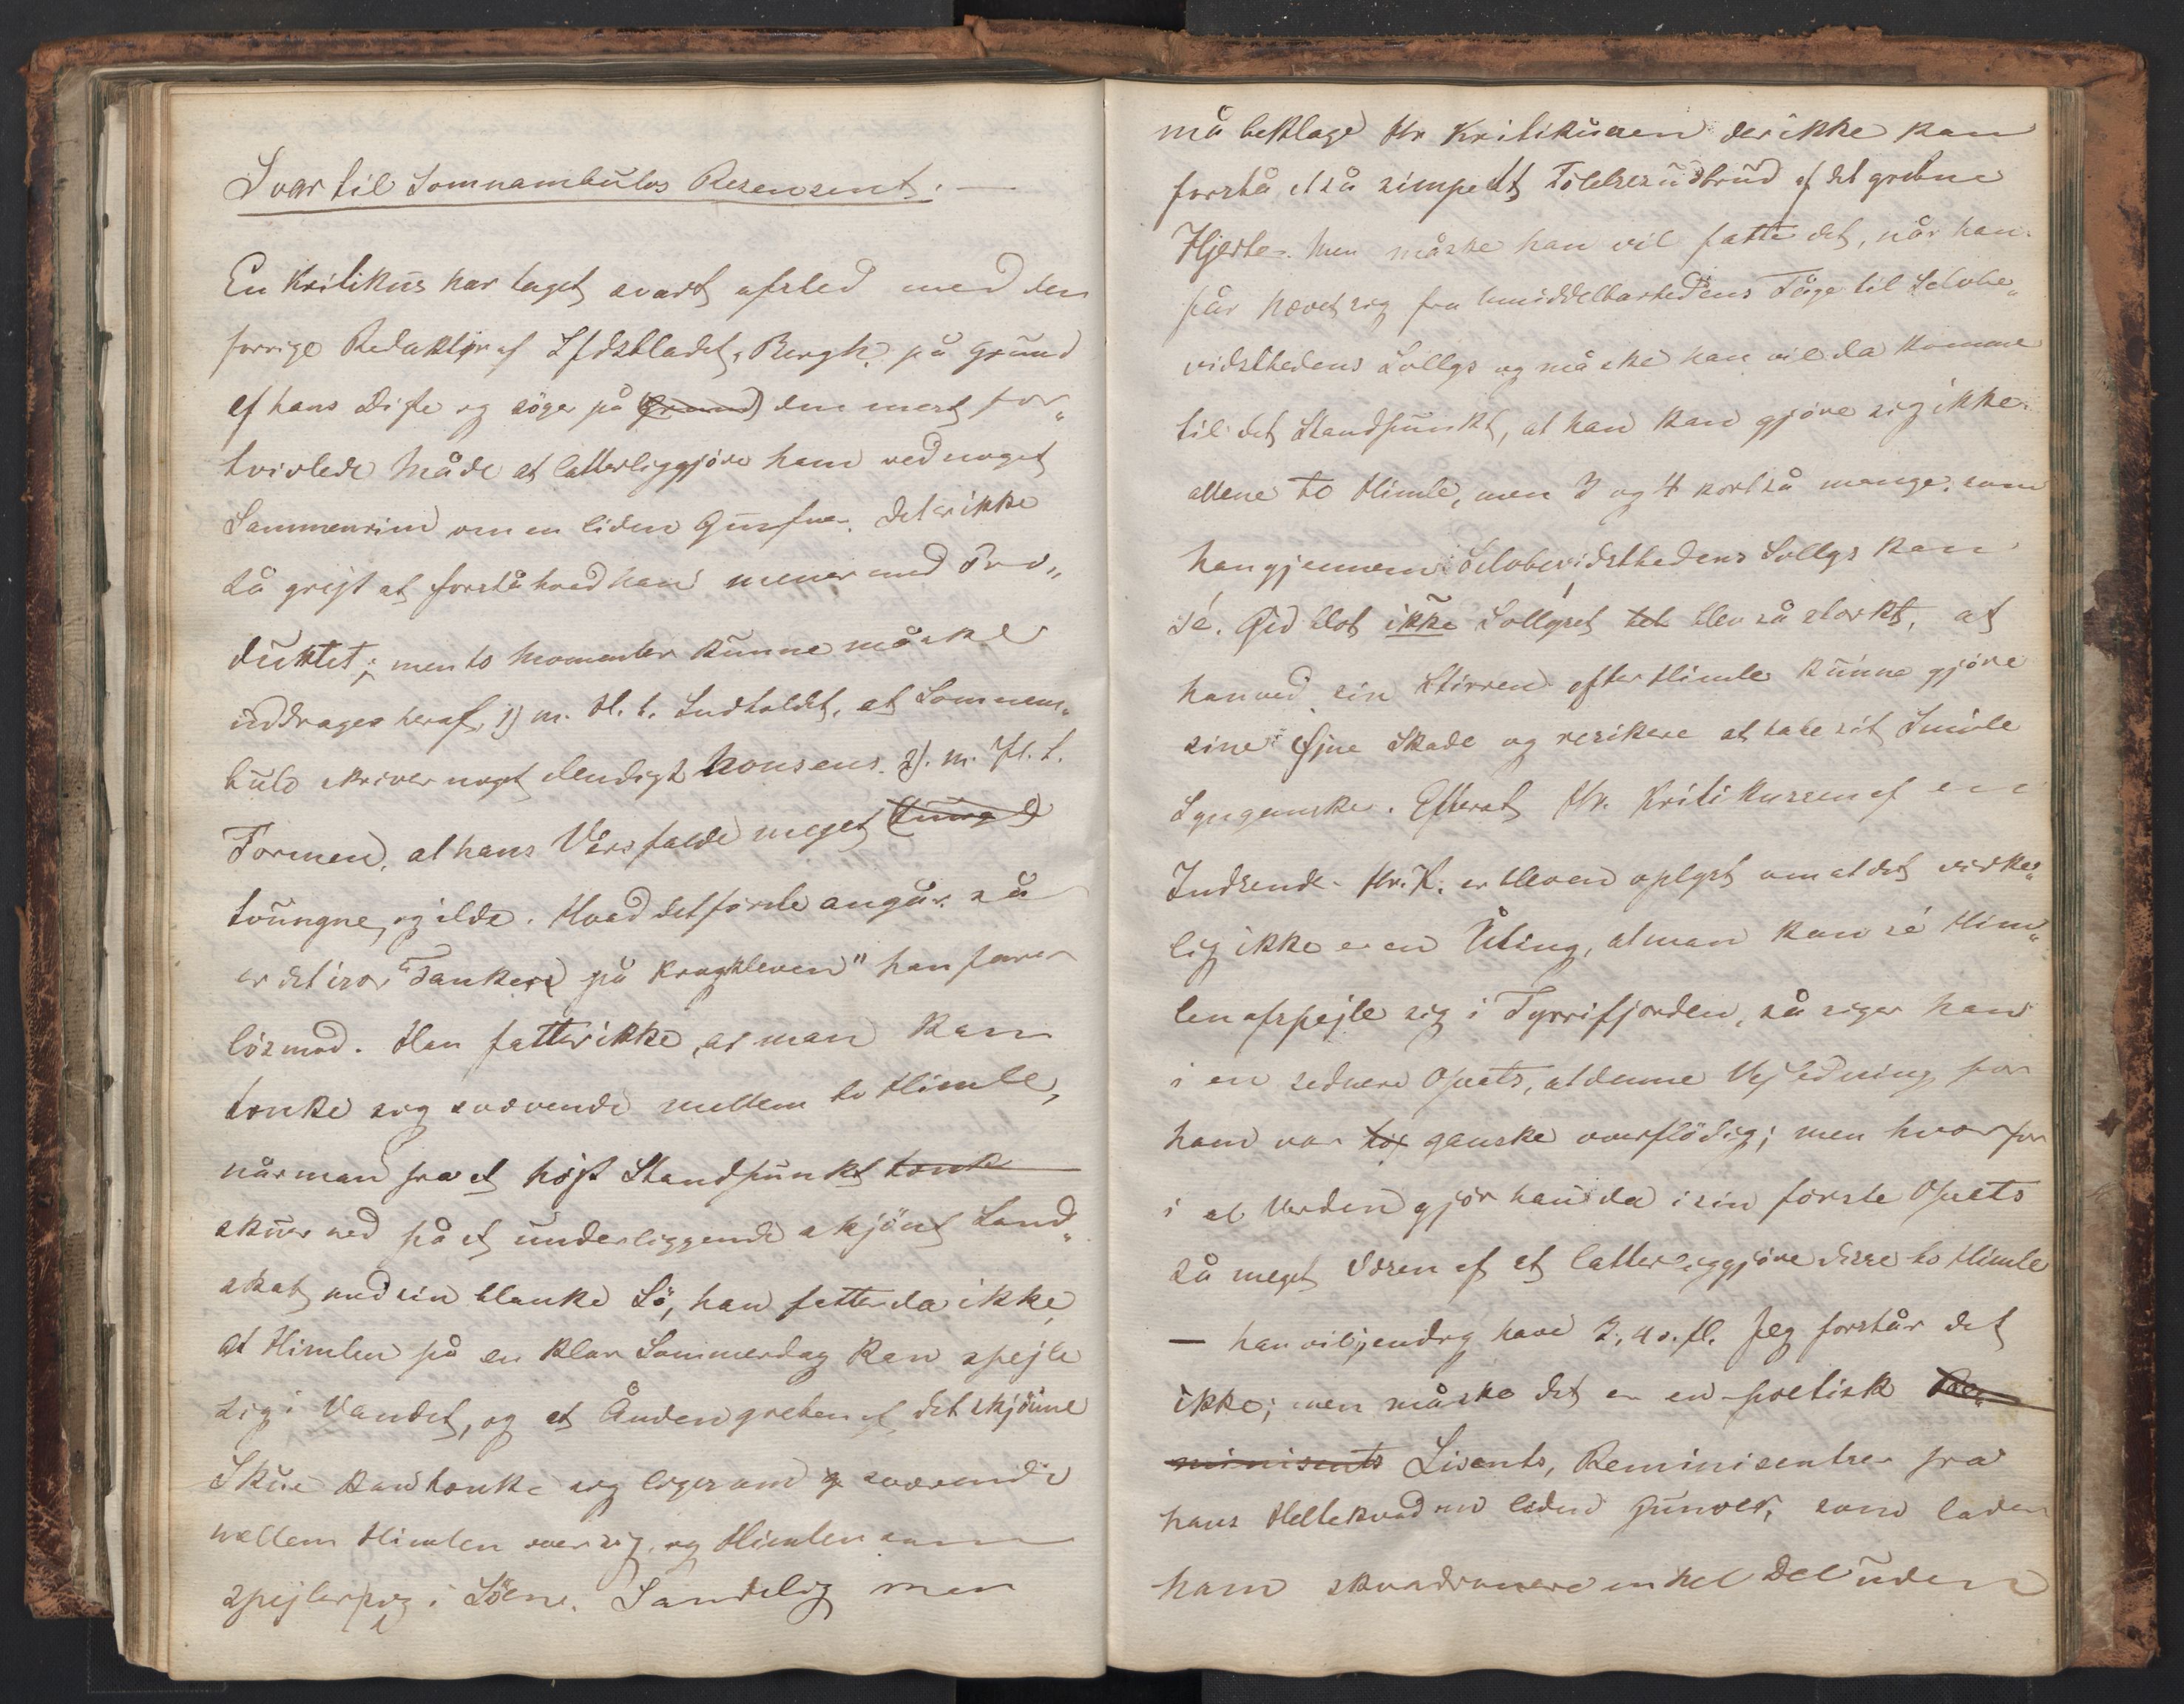 Svar til Somnambulos Resensent. —
En Kritikus har taget svart afsted med den
forrige Redaktör af Sfdsbladet, Bergh, på Grund
af hans Digte og söger på Grund den mest for„
tvivlede Måde at latterliggjöre ham ved noget
Sammenrim om en liden Gunfver. Det er ikke
så greijt at forstå hvad han mener med Pro„
duktet; men to Momenter kunne måske
uddrages heraf, 1) m. H. t. Indholdet, at Somnam„
bulo skriver noget elendigt Nonsens. 2). m. H. t.
Formen, at hans Vers falde meget tunge
tvungne og ilde. Hvad det förste angår, så
er det især "Tankerne på Krogkleven" han farer
lös mod. Han fatter ikke, at man kan
tænke sig svævende mellem to Himle,
når man fra et höjt Standpunkt tænk
skuer ned på et underliggende skjönt Land„
skab med sin blanke Sö, han fatter da ikke,
at Himlen på en klar Sommerdag kan spejle
sig i Vandet, og at Ånden greben af det skjönne
Skue kan tænke sig ligesom svævende
mellem Himlen over sig, og Himlen som
spejler sig i Söene. Sandelig man
må beklage Hr Kritikusen der ikke kan
forstå et så simpelt Fölelsesudbrud af det grebne
Hjerte. Men måske han vil fatte det, når han
får hævet sig fra Umiddelbarhedens Tåge til Selvbe„
vidsthedens Sollys og måske han vil da komme
til det Standpunkt, at han kan gjöre sig ikke
allene to Himle, men 3 og 4 kort så mange, som
han gjennem Selvbevidsthedens Sollys kan
sé. Gid blot ikke Sollyset tet blev så stærkt, at
han ved sin Stirren efter Himle kunne gjöre
sine Øjne Skade og resikere at tabe sit Smule
Synsganske. Efterat Hr. Kritikussen af en
Indsende- Hr. K. er bleven oplyst om at det virke„
lig ikke er en Uting, at man kan sé Him„
len afspejle sig i Tyrrifjorden, så siger han
i en sednere Opsats, at denne Vejledning for
ham var ganske overflödig; men hvorfor
i al Verden gjör han da i sin förste Opsats
så meget Væsen af at latterliggjöre disse to Himle
— han vil jendog have 3, 4 o. fl. Jeg forstår det
ikke; men måske det er en poetisk Re„
minisents Lisents, Reminisentser fra
hans Heltekvad om liden Gunver, som lader
ham skvadronere en hel Del uden